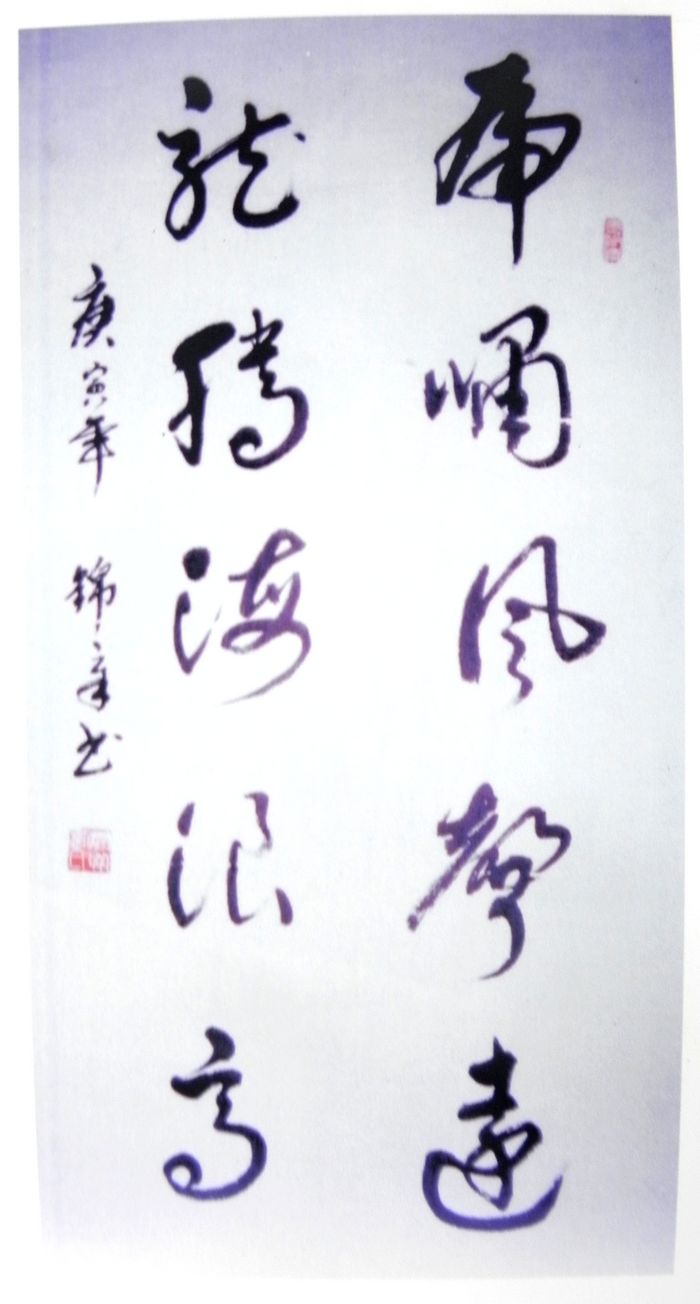 虎嘯风聲遠
龍騰海浪高
庚寅年 錦章书